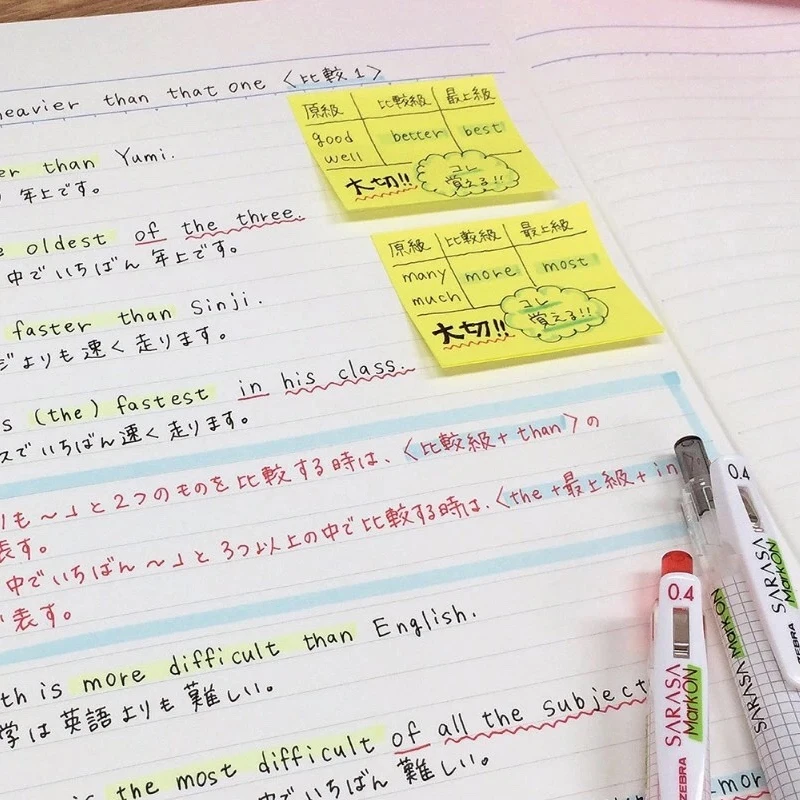 heavier than that one 〈比較1〉
er than Yumi.
年上です。
e oldest of the three.
中でいちばん年上です。
faster than Sinji.
ジよりも速く走ります。
s (the) fastest in his class.
スでいちばん速く走ります。
りも～」と2つのものを比較する時は、〈比較級+than〉の
表す。
中でいちばん～」と3つ以上の中で比較する時は、〈the+最上級+in
表す。
th is more difficult than English.
学は英語よりも難しい。
is the most difficult of all the subject
中でいちばん難しい。
mor
原級 比較級 最上級
good better best
well
大切!! コレ
覚える!!
原級 比較級 最上級
many more most
much
大切!! コレ
覚える!!
0.4
SARASA
MarkON
ZEBRA
0.4
SARASA
MarkON
ZEBRA
SARASA MarkON